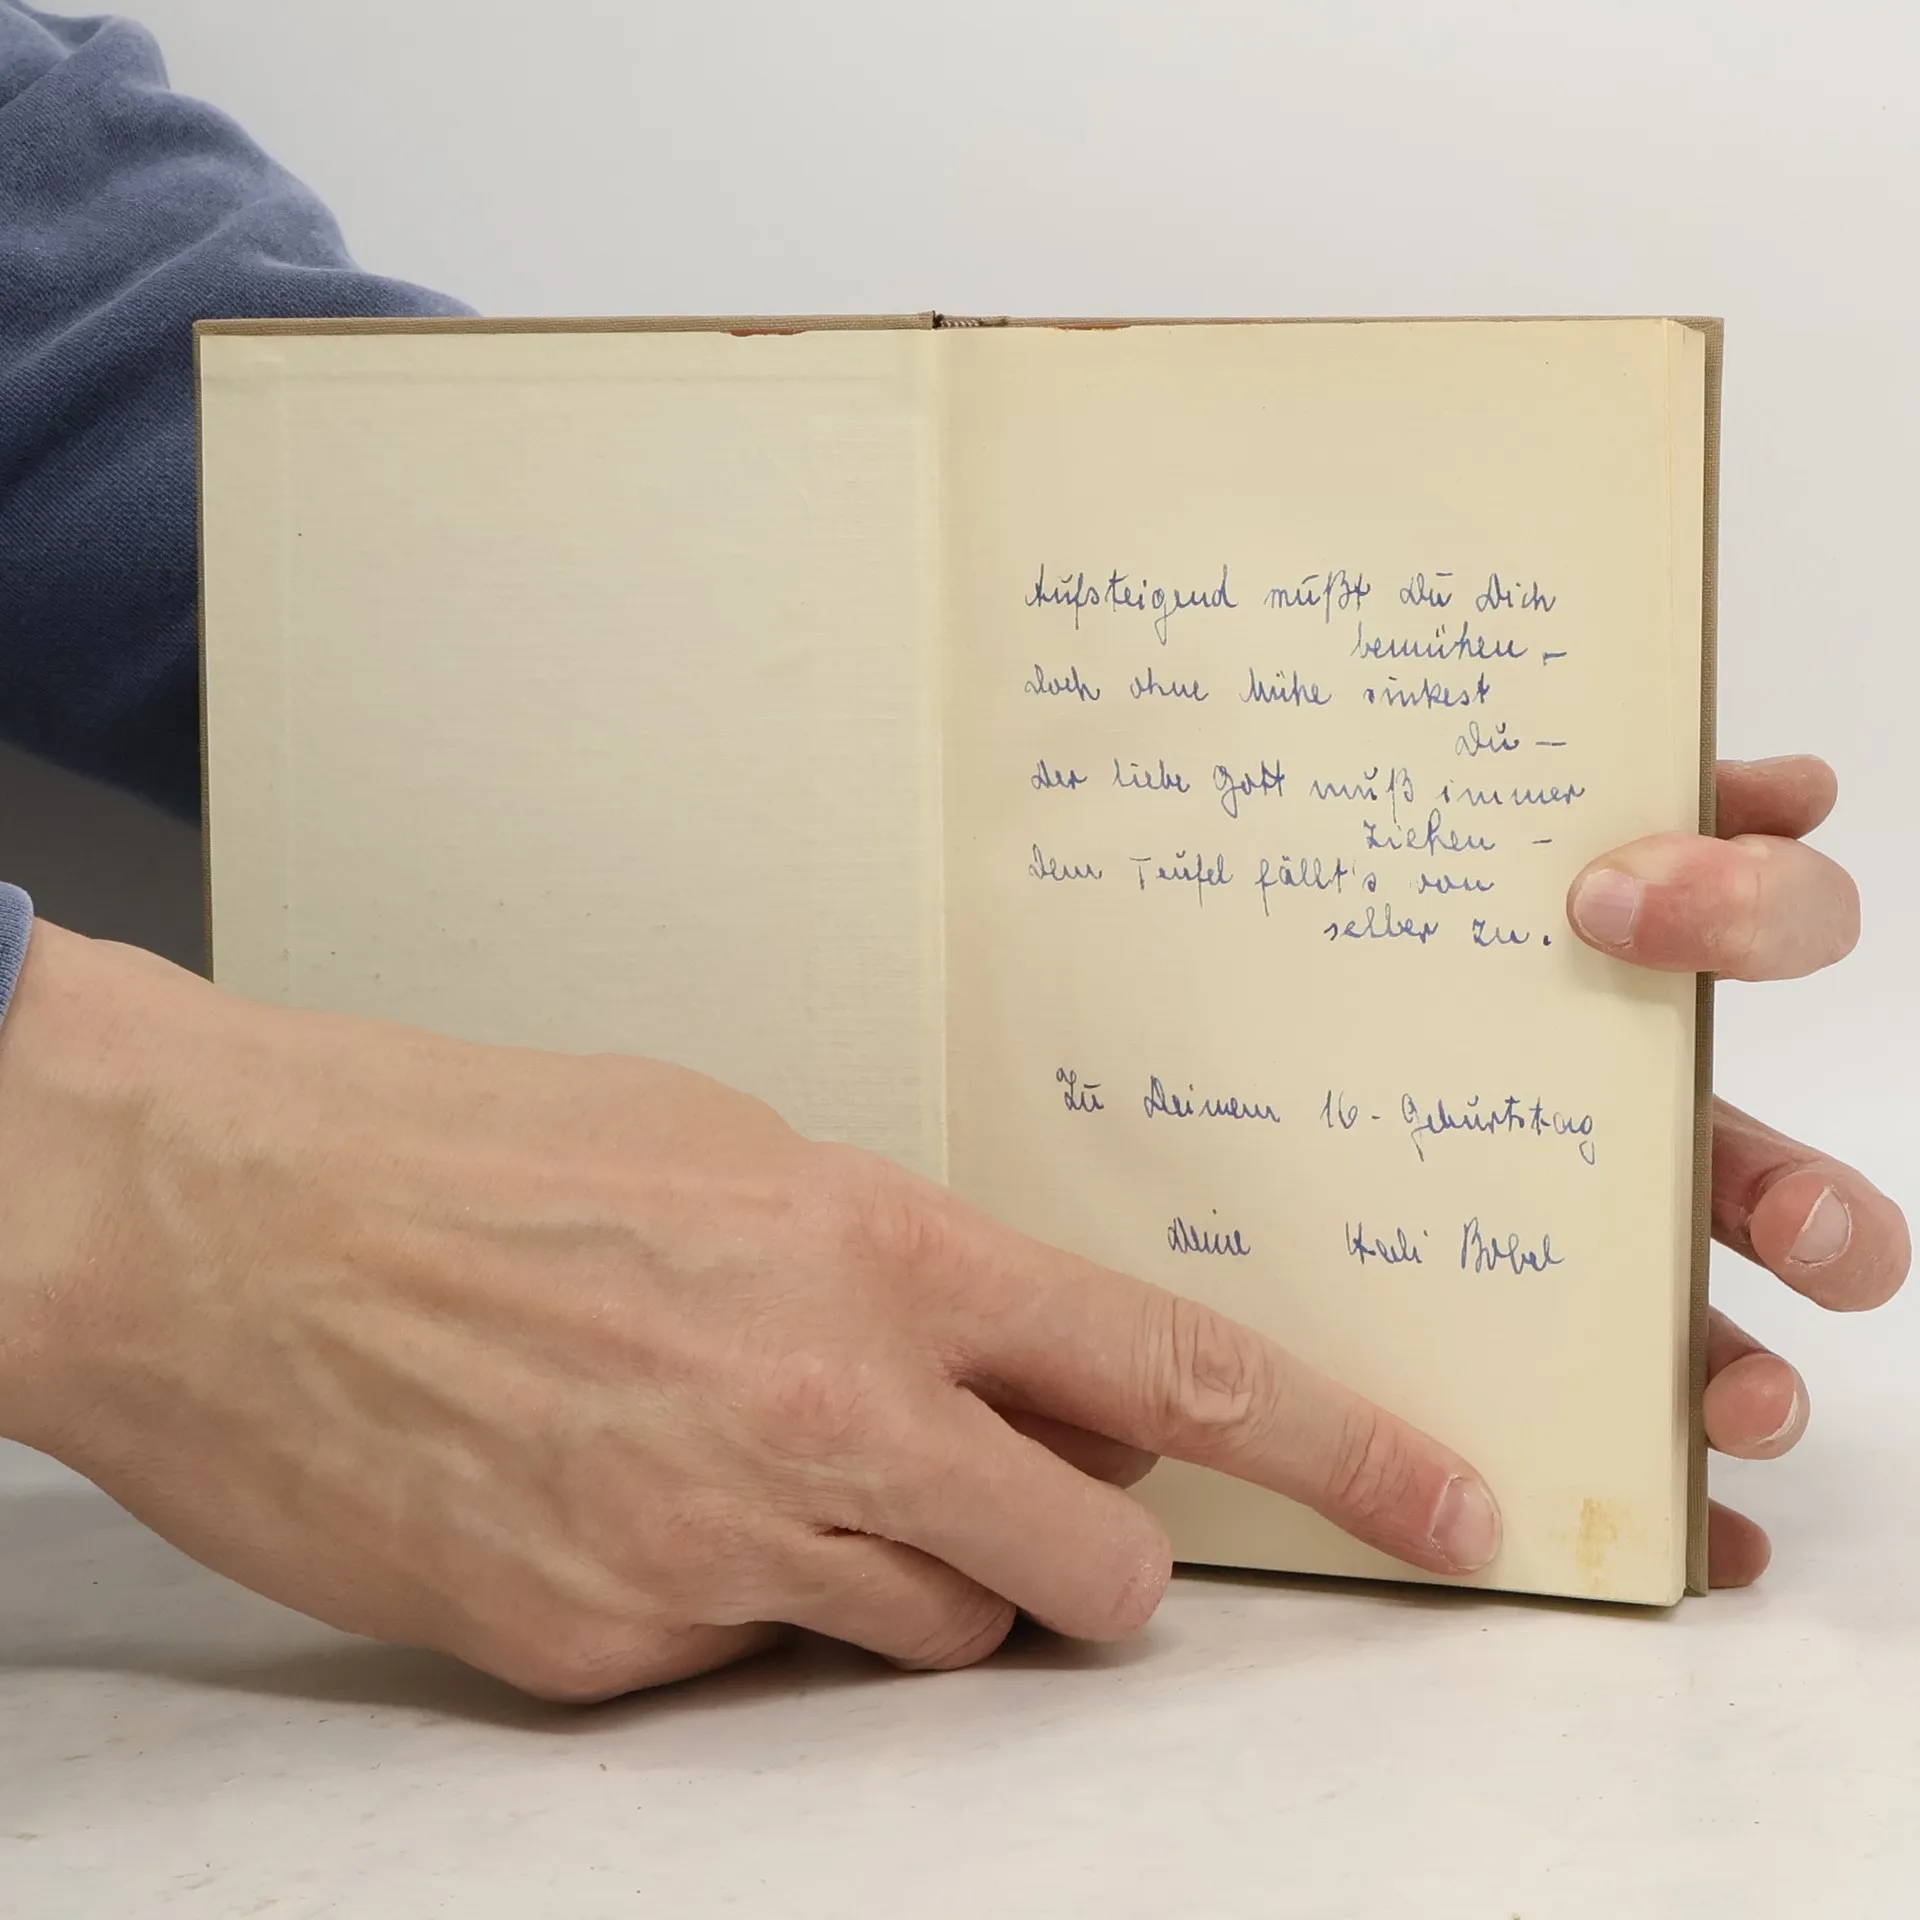 Aufsteigend mußt Du Dich
bemühen –
Doch ohne Mühe sinkest
Du –
Der liebe Gott muß immer
ziehen –
Dem Teufel fällt's von
selber zu.
Zu Deinem 16. Geburtstag
Deine